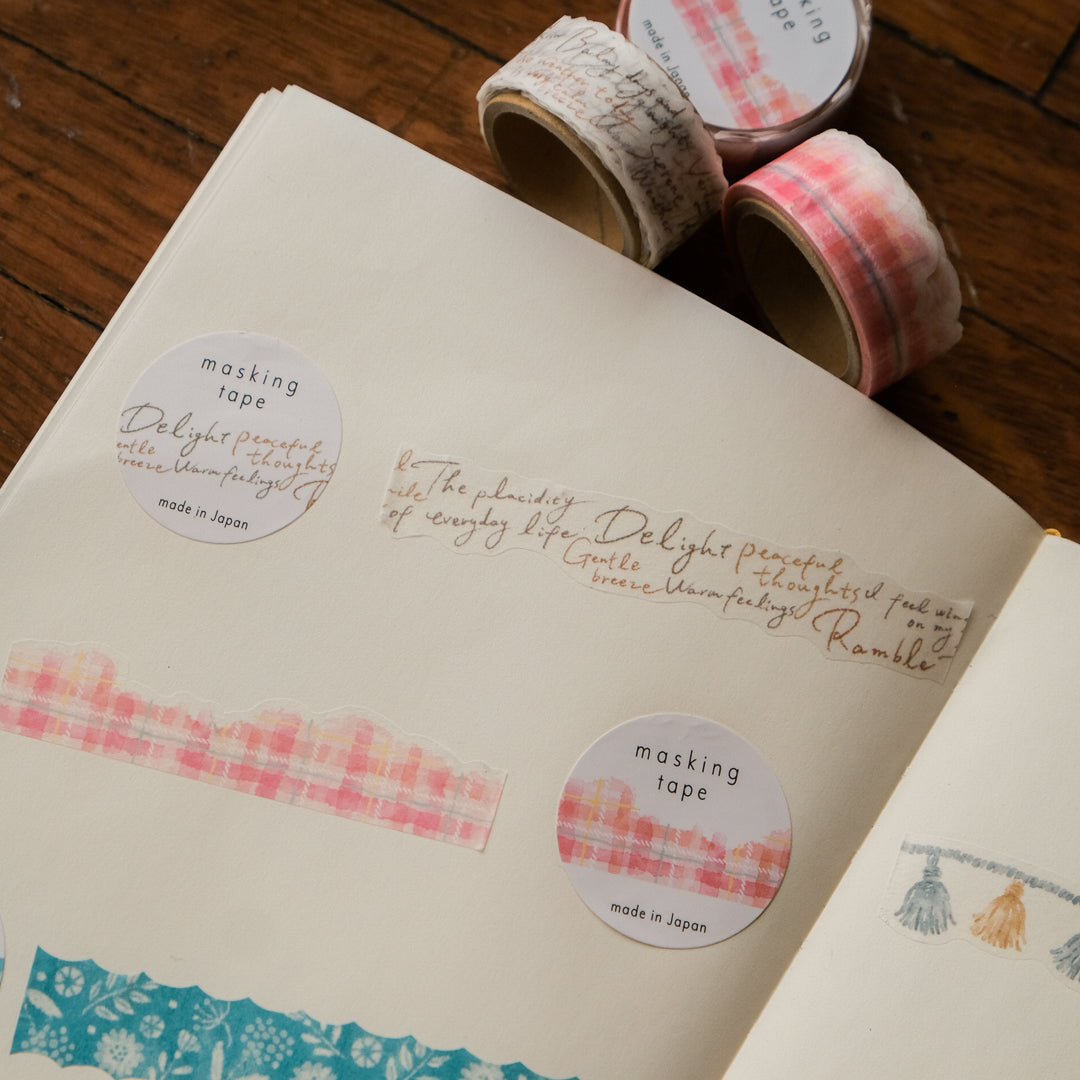 masking
tape
made in Japan
masking
tape
Delight peaceful
thoughts
breeze Warm feelings
made in Japan
The placidity
of everyday life
Delight peaceful
thoughts
Gentle
breeze Warm feelings
I feel
on my
Ramble
masking
tape
made in Japan